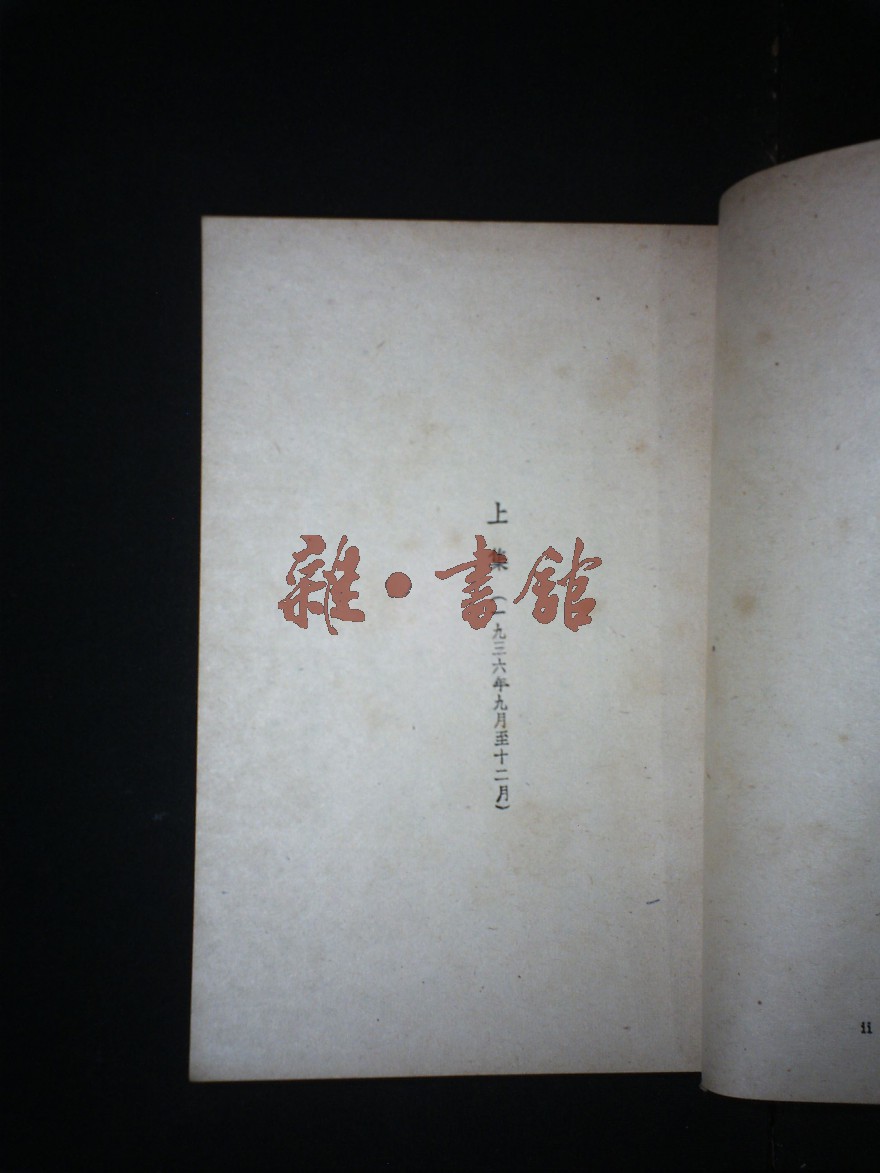 上集（一九三六年九月至十二月）
雜·書館
ii